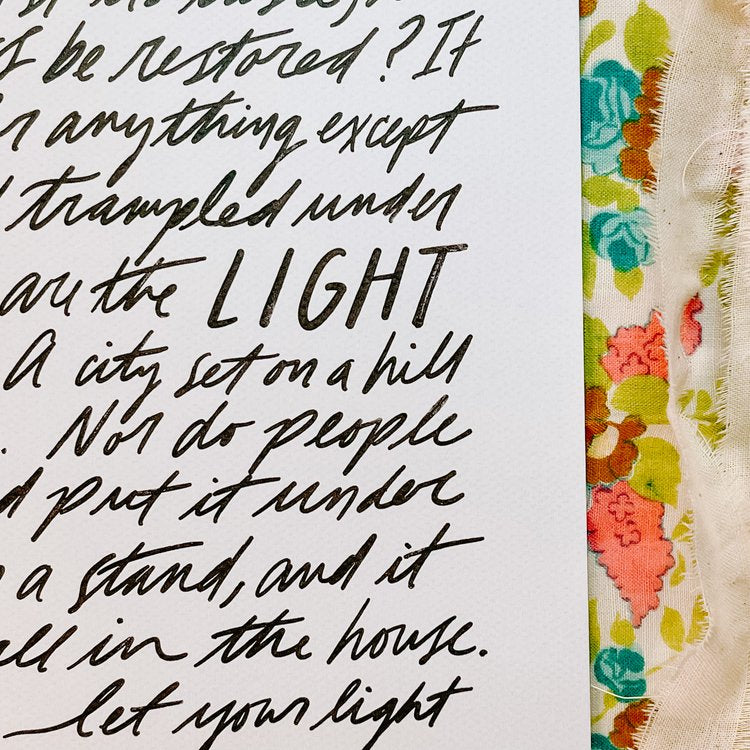 be restored? It
anything except
trampled under
are the LIGHT
A city set on a hill
. Nor do people
put it under
a stand, and it
all in the house.
let your light